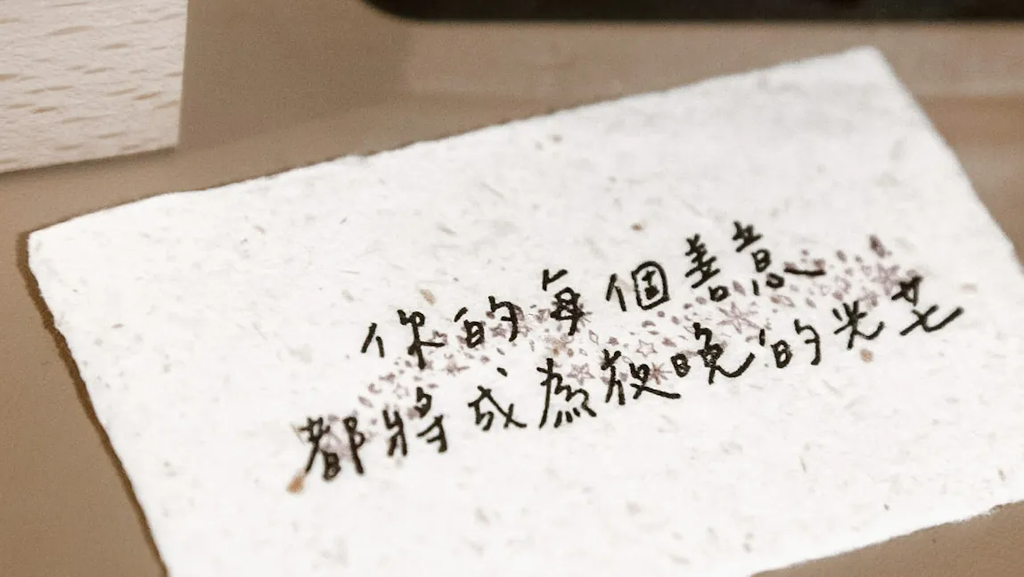 你的每個善意
都將成為夜晚的光芒